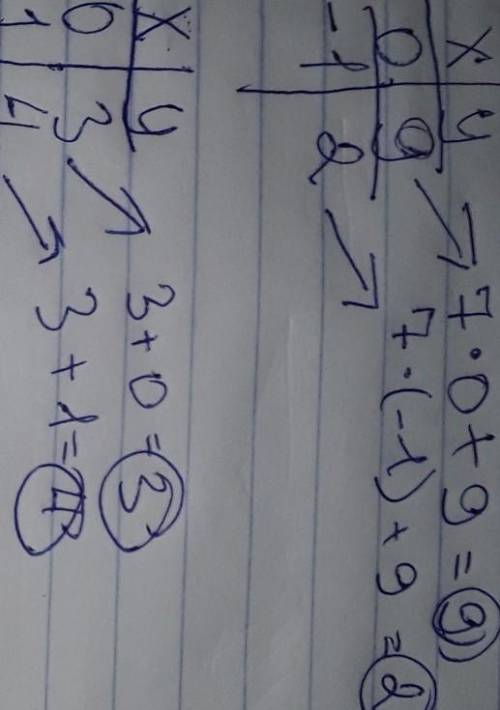 x | y
0 | 9 → 7·0+9=9
-1 | 2 → 7·(-1)+9=2
x | y
0 | 3 → 3+0=3
1 | 4 → 3+1=4